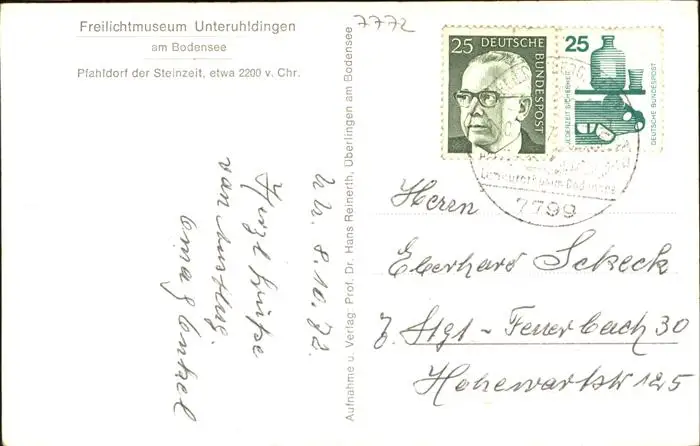 Freilichtmuseum Unteruhldingen
am Bodensee
Pfahldorf der Steinzeit, etwa 2200 v. Chr.
7772
Uh. 8.10.72.
Herzl. Grüße
von Ausflug.
Oma g Onkel
Aufnahme u. Verlag: Prof. Dr. Hans Reinerth, Überlingen am Bodensee
25 DEUTSCHE BUNDESPOST
25
JEDERZEIT SICHERHEIT
DEUTSCHE BUNDESPOST
7799
Herrn
Eberhard Scheck
7 Stgt - Feuerbach 30
Hohewartstr 125